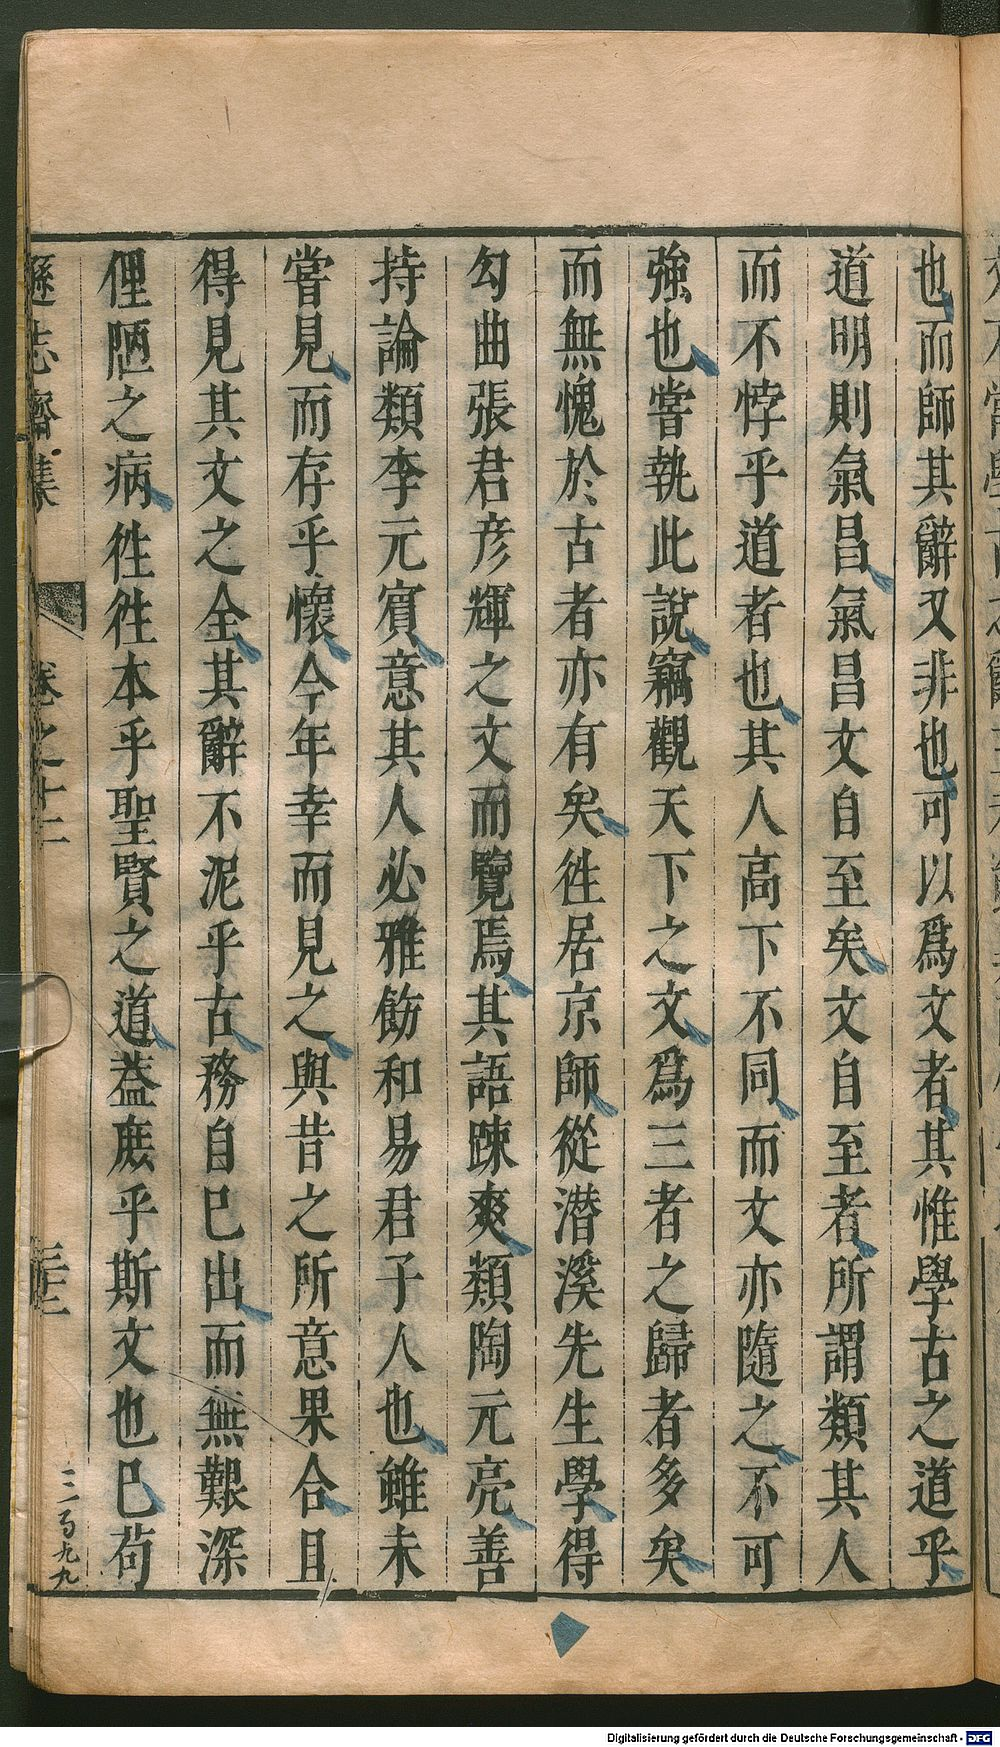 也而師其辭又非也可以爲文者其惟學古之道乎
道明則氣昌氣昌文自至矣文自至者所謂類其人
而不悖乎道者也其人高下不同而文亦隨之不可
強也嘗執此說竊觀天下之文爲三者之歸者多矣
而無愧於古者亦有矣徃居京師從潛溪先生學得
勾曲張君彦輝之文而覽焉其語踈爽類陶元亮善
持論類李元賓意其人必雅飭和易君子人也雖未
嘗見而存乎懷今年幸而見之與昔之所意果合且
得見其文之全其辭不泥乎古務自巳出而無艱深
俚陋之病徃徃本乎聖賢之道葢庶乎斯文也巳苟
遜志齋集
卷之十二
三百九九
Digitalisierung gefördert durch die Deutsche Forschungsgemeinschaft - DFG